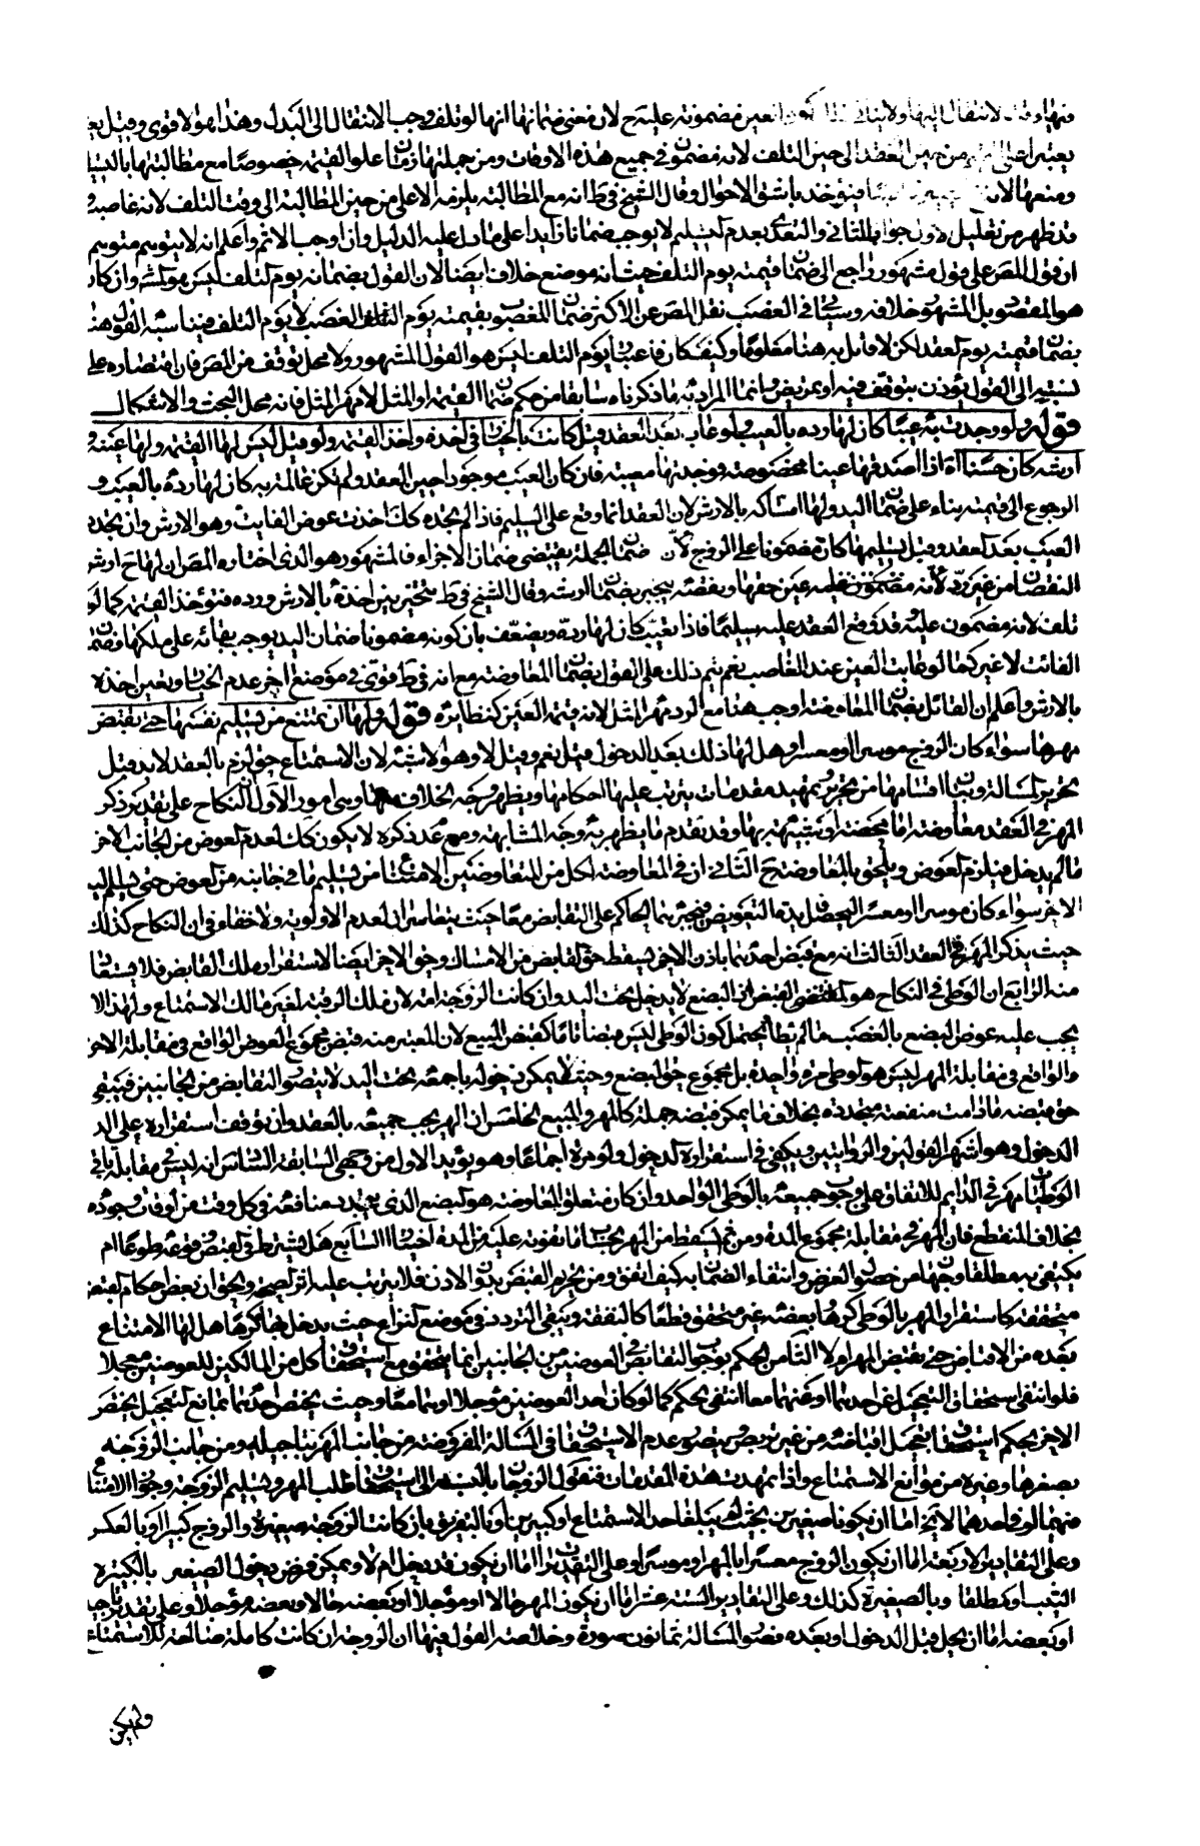 فيها وقت الانتقال اليها ولا ينافي ذلك كون العين مضمونة عليه ح لان معنى ضمانها انها لو تلف وجب الانتقال الى البدل وهذا هو الاقوى وقيل
يعتبر اعلى القيم من حين العقد الى حين التلف لانه مضمون في جميع هذه الاوقات ومن جملتها زمان علو القيمة خصوصا مع مطالبتها بالتسليم
ومنعها لانه فيؤخذ باشق الاحوال وقال الشيخ في ط انه مع المطالبة يلزمه الاعلى من حين المطالبة الى وقت التلف لانه غاصب
قد ظهر من تعليل الاول جواب الثاني والتعدي بعدم التسليم لا يوجب ضمانا زايدا على ما دل عليه الدليل وان اوجب الاثم واعلم انه لا يتوهم متوهم
ان قول المص على قول مشهور راجع الى ضمان قيمته يوم التلف حيث انه موضع خلاف ايضا لان القول بضمانه يوم التلف ليس هو المشهور وان كان
هو المقصود بل المشهور خلافه وسياتي في الغصب نقل المص عن الاكثر ضمان المغصوب بقيمته يوم الغصب لا يوم التلف فيناسبه القول هنا
بضمان قيمته يوم العقد لكن لا قائل به هنا معلوما وكيف كان فاعتبار يوم التلف ليس هو القول المشهور ولا محل توقف من المص فان اقتصاره على
نسبته الى القول يؤذن بتوقف فيه او تمريض وانما المراد به ما ذكرناه سابقا من حكم ضمان القيمة او المثل لا مهر المثل فانه محل البحث والاشكال
قوله ولو وجدت به عيبا كان لها رده بالعيب ولو عاب بعد العقد قيل كانت بالخيار في اخذه واخذ القيمة ولو قيل ليس لها القيمة ولها عينه و
ارشه كان حسنا اذا اصدقها عينا مخصوصة فوجدتها معيبة فان كان العيب موجودا حين العقد ولم تكن عالمة به كان لها رده بالعيب و
الرجوع الى قيمته بناء على ضمان اليد ولها امساكه بالارش لان العقد انما وقع على السليم فاذا لم تجده كذلك اخذت عوض الفايت وهو الارش وان تجدد
العيب بعد العقد وقبل تسليمها كان مضمونا على الزوج لان ضمان الجملة يقتضي ضمان الاجزاء فالمشهور وهو الذي اختاره المص ان لها ح ارش
النقصان من غير رد لانه عين حقها ونقصه ينجبر بضمان ارشه وقال الشيخ في ط تتخير بين اخذه بالارش ورده فتؤخذ القيمة كما لو
تلف لانه مضمون عليه قد وقع العقد عليه سليما فاذا تعيب كان لها رده ويضعف بان كونه مضمونا ضمان اليد يوجب بقائه على ملكها وضمان
الفائت لا غير كما لو عابت العين عند الغاصب نعم يتم ذلك على القول بضمان المعاوضة مع انه في ط قوى في موضع اخر عدم الخيار وتعين اخذه
بالارش واعلم ان القائل بضمان المعاوضة اوجب هنا مع الرد مهر المثل لانه قيمة العين كنظايره قوله ولها ان تمتنع من تسليم نفسها حتى تقبض
مهرها سواء كان الزوج موسرا او معسرا وهل لها ذلك بعد الدخول قيل نعم وقيل لا وهو الاشبه لان الاستمتاع حق لزم بالعقد لا بد قبل
تحرير المسالة وبيان اقسامها من تحرير وتمهيد مقدمات يترتب عليها احكامها ويظهر وجه الخلاف فيها وهي امور الاول النكاح على تقدير ذكر
المهر في العقد معاوضة اما محضة او شبيهة بها وقد تقدم ما يظهر به وجه المشابهة ومع عدم ذكره لا يكون كذلك لعدم العوض من الجانب الاخر
ما لم يدخل فيلزم العوض ويلحق بالمعاوضة ح الثاني ان في المعاوضة لكل من المتعاوضين الامتناع من تسليم ما في جانبه من العوض حتى يسلم اليه
الاخر سواء كان موسرا او معسرا ليحصل بيده التعويض فيجبرهما الحاكم على التقابض معا حيث يتعاسران لعدم الاولوية ولا خفاء في ان النكاح كذلك
حيث يذكر المهر في العقد الثالث انه مع قبض احدهما باذن الاخر يسقط حق القابض من الامساك وحق الاخر ايضا لاستقرار ملك القابض فلا يستعاد
منه الرابع ان الوطي في النكاح هو القبض اذ البضع لا يدخل تحت اليد وان كانت الزوجة امة لان ملك الرقبة لغير مالك الاستمتاع ولهذا لا
يجب عليه عوض البضع بالغصب ما لم يطأ ويحتمل كون الوطي ليس قبضا تاما كقبض المبيع لان المعتبر منه قبض مجموع العوض الواقع في مقابلة الاخر
والواقع في مقابلة المهر ليس هو الوطي مرة واحدة بل مجموع حق البضع وحيث لا يمكن دخوله باجمعه تحت اليد لا يتصور التقابض من الجانبين فيبقى
حق قبضه ما دامت منفعته متجددة بخلاف ما يمكن قبضه جملة كالمهر والمبيع الخامس ان المهر يجب جميعه بالعقد وان توقف استقراره على
الدخول وهو اشهر القولين والروايتين ويكفي في استقراره الدخول ولو مرة اجماعا وهو يؤيد الاول من وجهي السابقة السادس انه ليس في مقابلة باقي
الوطيات مهر في الدايم للاتفاق على وجوب جميعه بالوطي الواحد وان كان متعلق المعاوضة هو البضع الذي يريد منافعه في كل وقت من اوقات وجوده
بخلاف المنقطع فان المهر في مقابلة مجموع المدة ومن ثم يسقط من المهر بحساب ما تفوته عليه من المدة اختيارا السابع هل يشترط في القبض وقوعه طوعا ام
يكتفي به مطلقا وجهان من حصول الغرض وانتفاء الضمان به كيف اتفق ومن تحريم القبض بدون الاذن فلا يترتب عليه اثر الصحيح والحق ان بعض احكام القبض
متحققة كاستقرار المهر بالوطي كرها وبعضه غير متحقق قطعا كالنفقة ويبقى التردد في موضع النزاع حيث يدخل بها كرها هل لها الامتناع
بعده من الاقباض حتى تقبض المهر ام لا الثامن الحكم بوجوب التقابض في العوضين من الجانبين انما يتحقق مع استحقاق كل من المالكين للعوضين معجلا
فلو انتفى استحقاق التعجيل عن احدهما او عنهما معا انتفى الحكم كما لو كان احد العوضين مؤجلا او هما معا وحيث يختص احدهما بمانع التعجيل يختص
الاخر بحكم استحقاق تعجيل اقباضه من غير تربص ويتصور عدم الاستحقاق في المسالة المفروضة من جانب المهر بتاجيله ومن جانب الزوجة
بصغرها وغيره من موانع الاستمتاع واذا تمهدت هذه المقدمات فنقول الزوجان بالنسبة الى استحقاق طلب المهر وتسليم الزوجة وجواز الامتناع
منهما او من احدهما لا يخ اما ان يكونا صغيرين بحيث لم يبلغا حد الاستمتاع او كبيرين او بالتفريق بان كانت الزوجة صغيرة والزوج كبيرا او بالعكس
وعلى التقادير الاربعة اما ان يكون الزوج معسرا بالمهر او موسرا وعلى التقديرين اما ان يكون قد دخل ام لا ويمكن فرض دخول الصغير بالكبيرة
الثيب او مطلقا وبالصغيرة كذلك وعلى التقادير الستة عشر اما ان يكون المهر حالا او مؤجلا او بعضه حالا وبعضه مؤجلا وعلى تقدير تاجيله
او بعضه اما ان يحل قبل الدخول او بعده فصور المسالة ثمانون صورة وخلاصة القول فيها ان الزوجة ان كانت كاملة صالحة للاستمتاع
ولم يكن